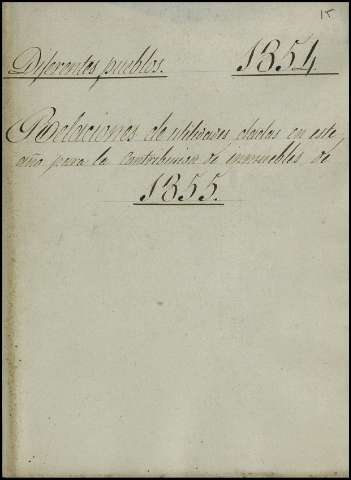 15
Diferentes pueblos. 1854
Relaciones de utilidades, dadas en este
año para la Contribucion de inmuebles de
1855.